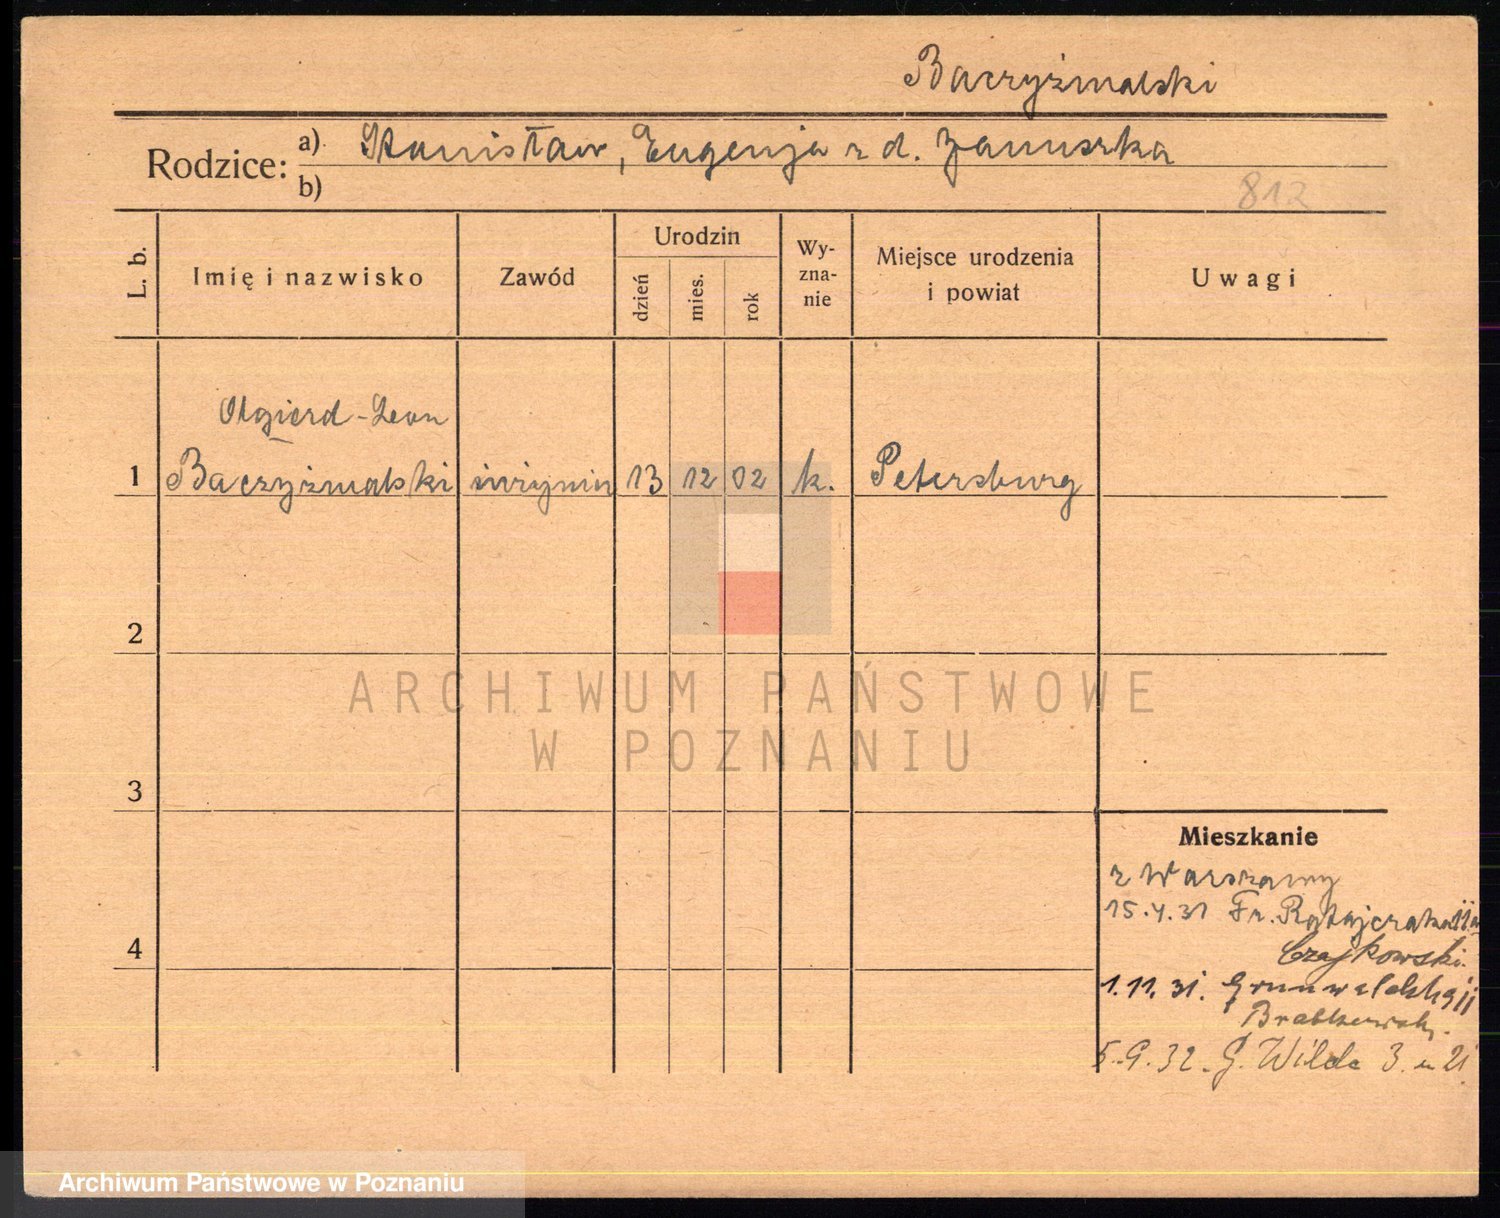 Baczyżmalski
Rodzice:
a) Stanisław, Eugenja z d. Januszka
b)
812
L. b.
Imię i nazwisko
Zawód
Urodzin
dzień
mies.
rok
Wy-
zna-
nie
Miejsce urodzenia
i powiat
Uwagi
Olgierd-Leon
1 Baczyżmalski inżynier 13 12 02 k. Petersburg
2
ARCHIWUM PAŃSTWOWE
W POZNANIU
3
Mieszkanie
z Warszawy
15.4.31 Fr. Ratajczaka
Czajkowski.
4
1.11.31.
5.9.32. G. Wilda 3.
Archiwum Państwowe w Poznaniu